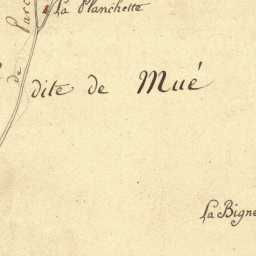 la Planchette
de
dite de Mué
la Bigne